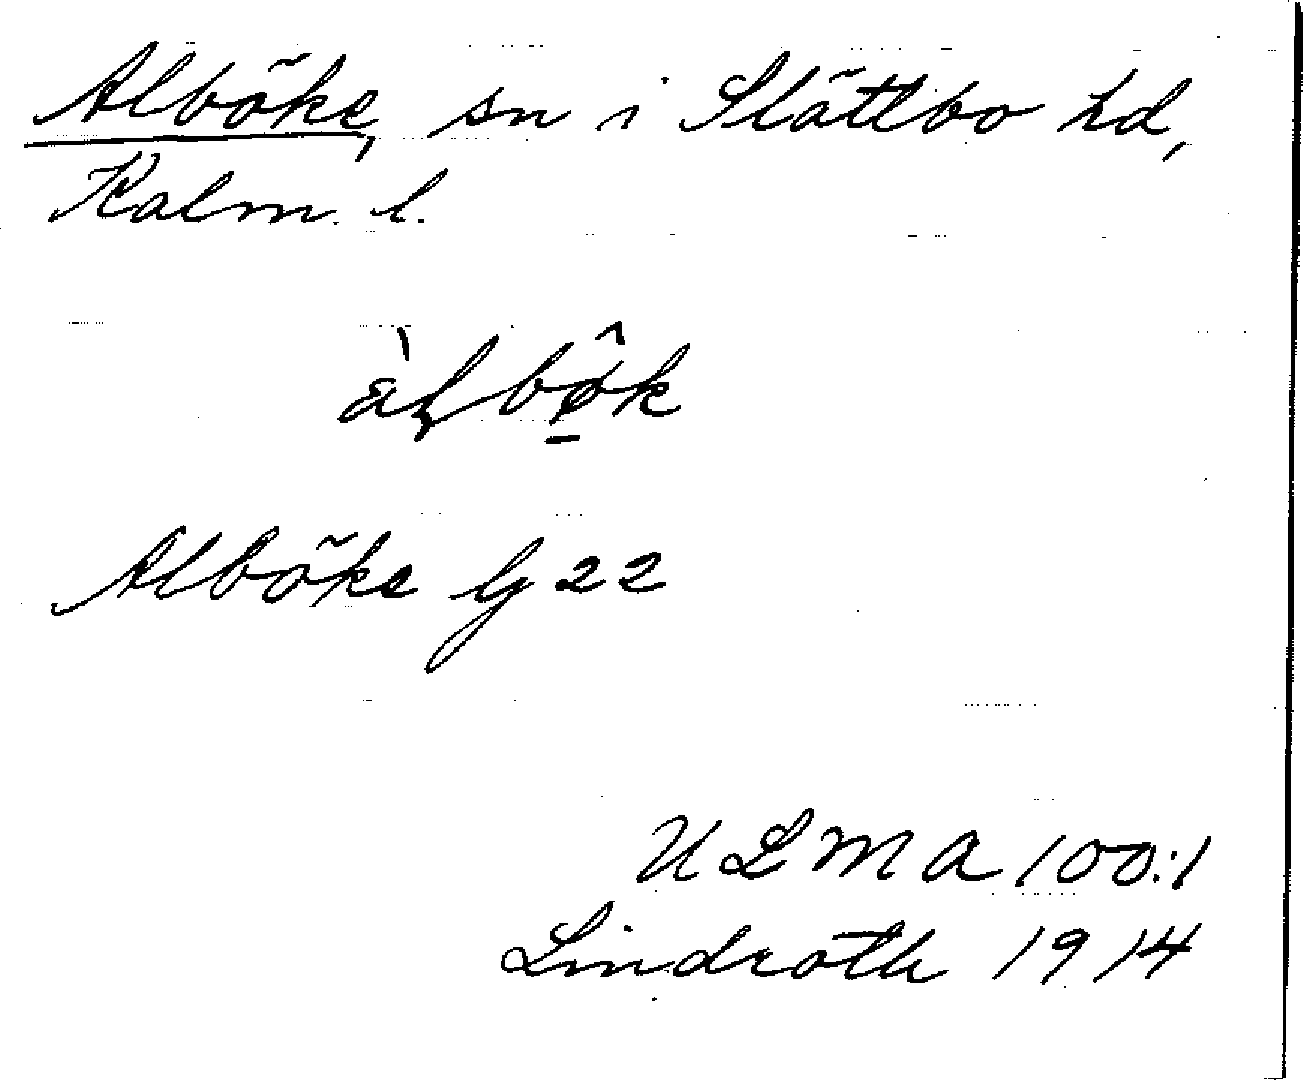 Alböke, sn i Slättbo hd,
Kalm. l.
Alböke G 22
ULMA 100:1
Lindroth 1914